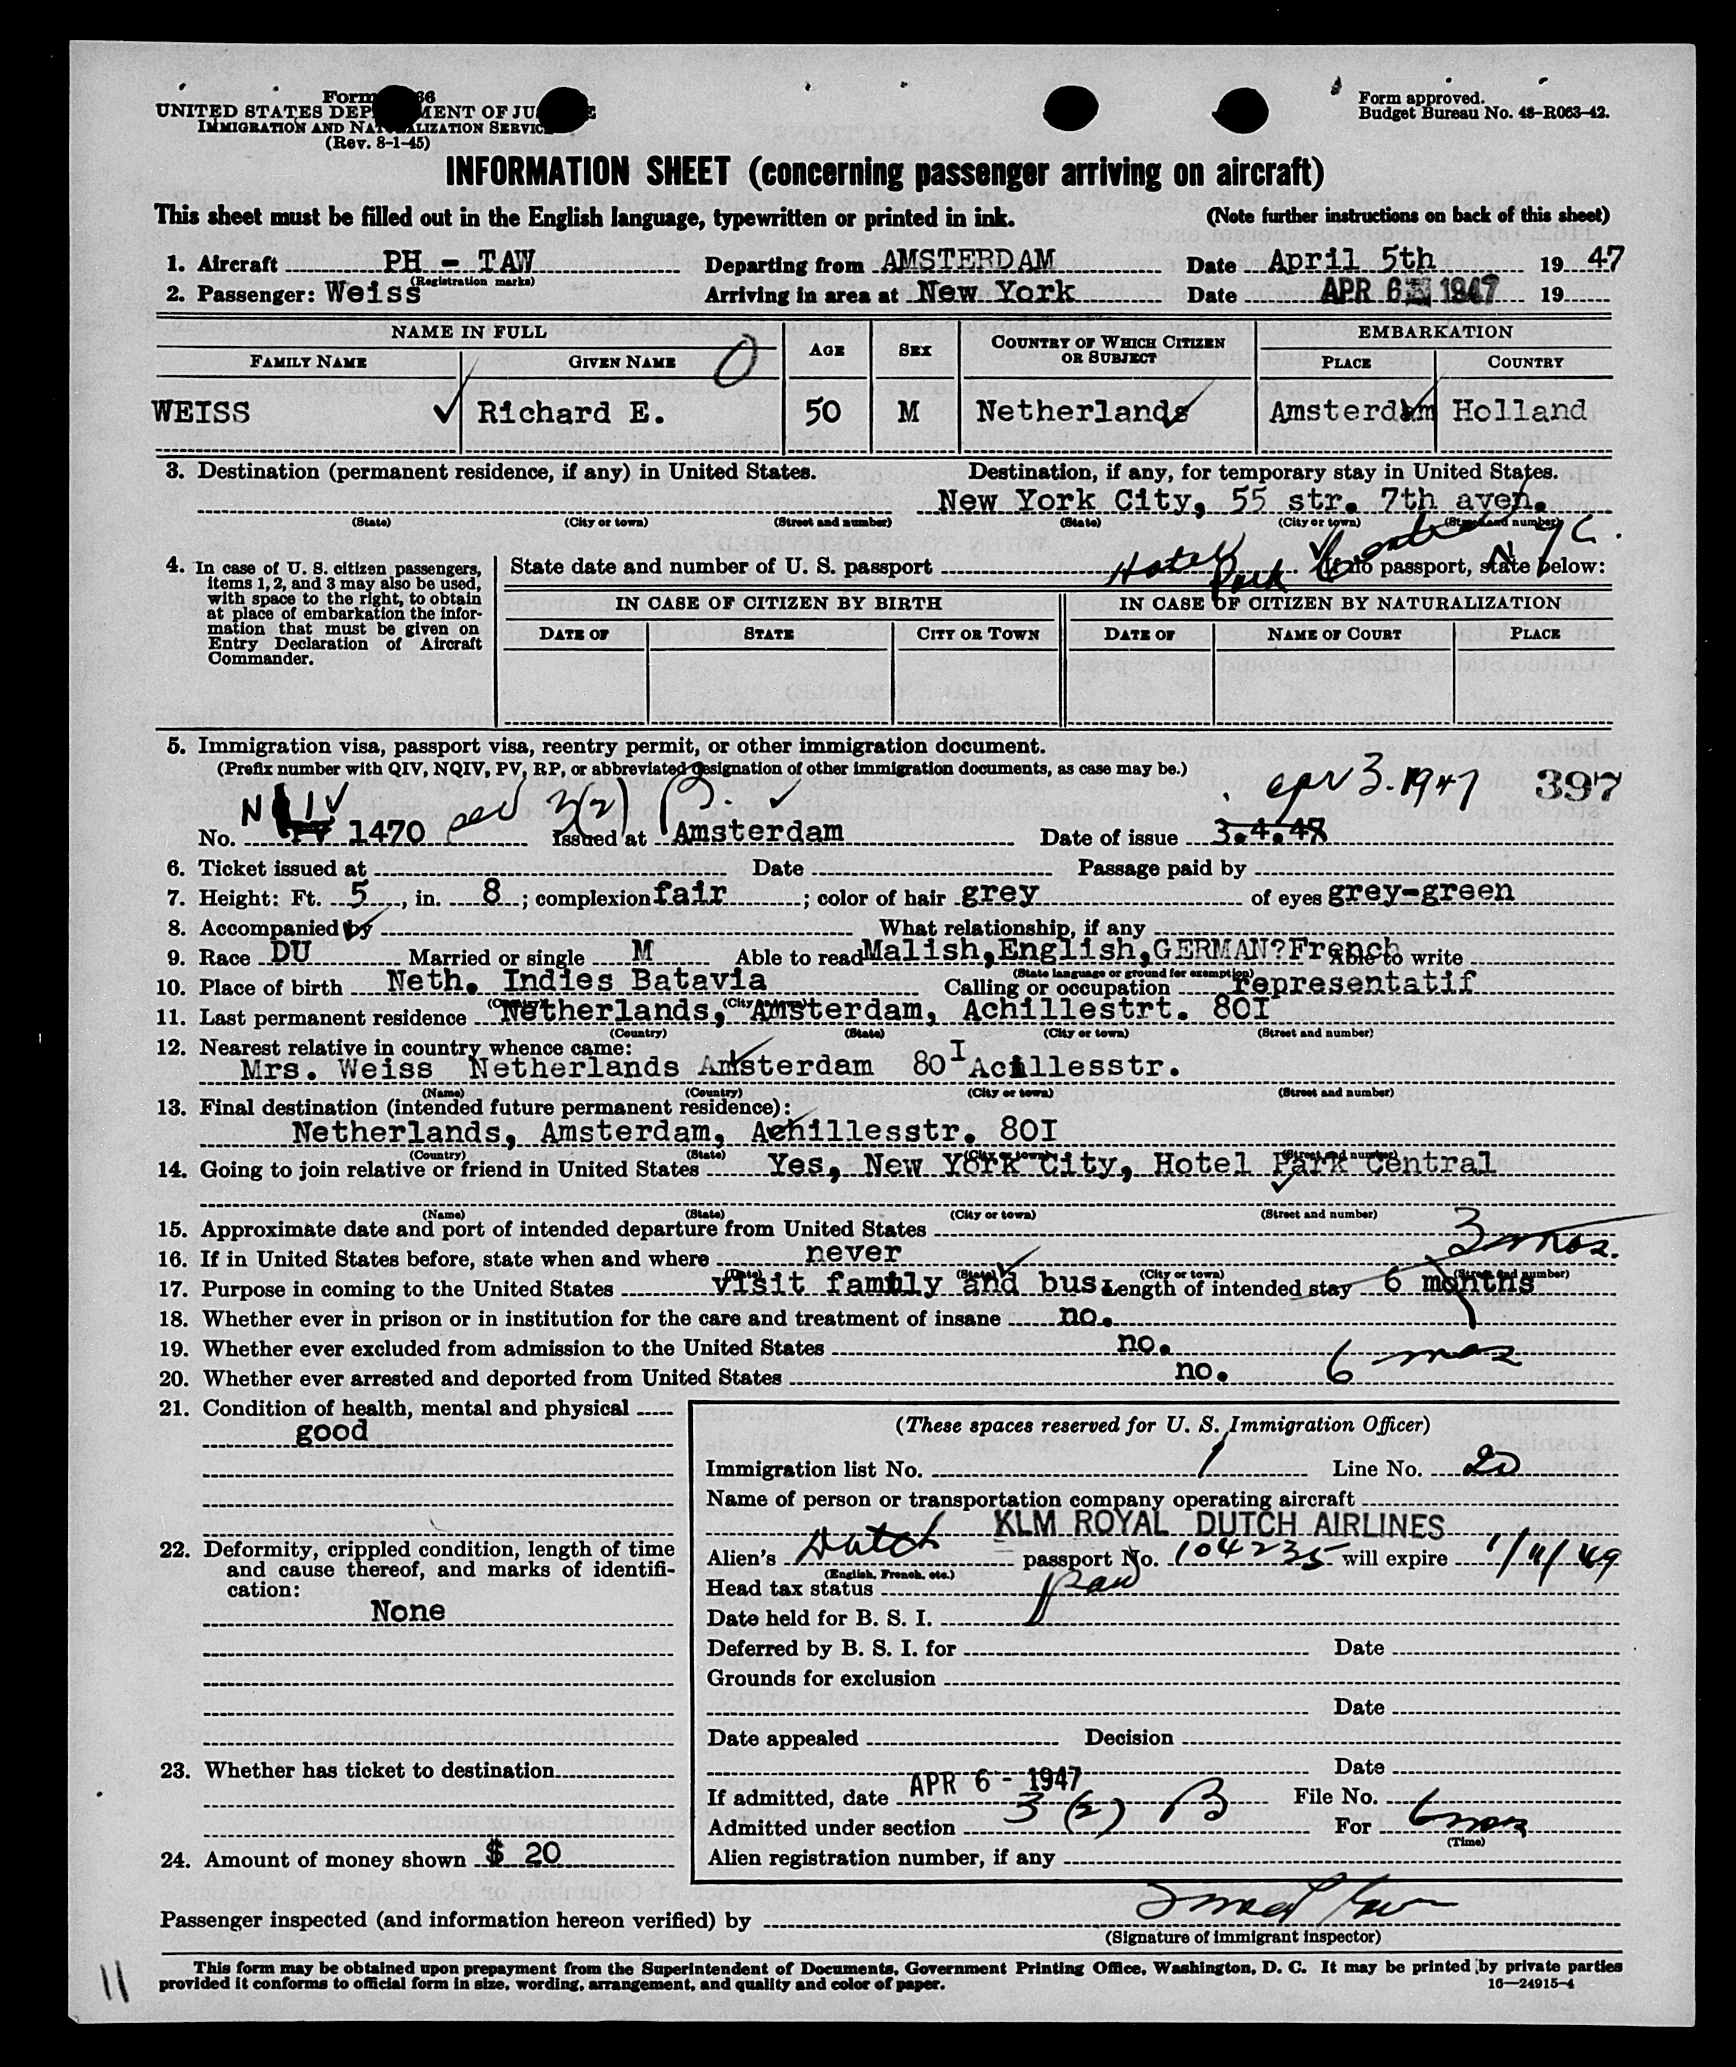 Form 66
UNITED STATES DEP MENT OF JU E
IMMIGRATION AND NAT LIZATION SERVIC
(Rev. 8-1-45)
Form approved.
Budget Bureau No. 43-R063-42.
INFORMATION SHEET (concerning passenger arriving on aircraft)
This sheet must be filled out in the English language, typewritten or printed in ink. (Note further instructions on back of this sheet)
1. Aircraft PH - TAW Departing from AMSTERDAM Date April 5th 19 47
(Registration marks)
2. Passenger: Weiss Arriving in area at New York Date APR 6 1947 19
NAME IN FULL AGE SEX COUNTRY OF WHICH CITIZEN OR SUBJECT EMBARKATION
FAMILY NAME GIVEN NAME PLACE COUNTRY
WEISS Richard E. 50 M Netherlands Amsterdam Holland
3. Destination (permanent residence, if any) in United States. Destination, if any, for temporary stay in United States.
New York City, 55 str. 7th aven.
(State) (City or town) (Street and number) (State) (City or town) (Street and number)
Hotel Park Central N Y C.
4. In case of U. S. citizen passengers, items 1, 2, and 3 may also be used, with space to the right, to obtain at place of embarkation the information that must be given on Entry Declaration of Aircraft Commander.
State date and number of U. S. passport If no passport, state below:
IN CASE OF CITIZEN BY BIRTH IN CASE OF CITIZEN BY NATURALIZATION
DATE OF STATE CITY OR TOWN DATE OF NAME OF COURT PLACE
5. Immigration visa, passport visa, reentry permit, or other immigration document.
(Prefix number with QIV, NQIV, PV, RP, or abbreviated designation of other immigration documents, as case may be.)
apr 3. 1947 397
No. 1470 3(2) B. Issued at Amsterdam Date of issue 3.4.47
6. Ticket issued at Date Passage paid by
7. Height: Ft. 5, in. 8; complexion fair; color of hair grey of eyes grey-green
8. Accompanied by What relationship, if any
9. Race DU Married or single M Able to read Malish,English,GERMAN?French Able to write
(State language or ground for exemption)
10. Place of birth Neth. Indies Batavia Calling or occupation representatif
(Country) (City or town)
11. Last permanent residence Netherlands, Amsterdam, Achillestrt. 80I
(Country) (State) (City or town) (Street and number)
12. Nearest relative in country whence came:
Mrs. Weiss Netherlands Amsterdam 80 I Acillesstr.
(Name) (Country) (City or town) (Street and number)
13. Final destination (intended future permanent residence):
Netherlands, Amsterdam, Achillesstr. 80I
(Country) (State) (City or town) (Street and number)
14. Going to join relative or friend in United States Yes, New York City, Hotel Park Central
(Name) (State) (City or town) (Street and number)
15. Approximate date and port of intended departure from United States 3 mos.
16. If in United States before, state when and where never
(Date) (State) (City or town) (Street and number)
17. Purpose in coming to the United States visit family and bus. Length of intended stay 6 months
18. Whether ever in prison or in institution for the care and treatment of insane no.
19. Whether ever excluded from admission to the United States no.
20. Whether ever arrested and deported from United States no. 6 mos
21. Condition of health, mental and physical
good
22. Deformity, crippled condition, length of time and cause thereof, and marks of identification:
None
23. Whether has ticket to destination
24. Amount of money shown $ 20
(These spaces reserved for U. S. Immigration Officer)
Immigration list No. 1 Line No. 20
Name of person or transportation company operating aircraft
KLM ROYAL DUTCH AIRLINES
Alien's Dutch passport No. 104235 will expire 1/11/49
(English, French, etc.)
Head tax status
Date held for B. S. I.
Deferred by B. S. I. for Date
Grounds for exclusion
Date
Date appealed Decision
Date
If admitted, date APR 6 - 1947 File No.
Admitted under section 3 (2) B For 6 mos
(Time)
Alien registration number, if any
Passenger inspected (and information hereon verified) by
(Signature of immigrant inspector)
This form may be obtained upon prepayment from the Superintendent of Documents, Government Printing Office, Washington, D. C. It may be printed by private parties
provided it conforms to official form in size, wording, arrangement, and quality and color of paper. 16—24915-4
11